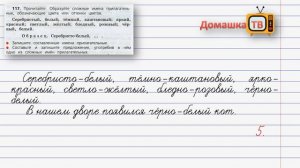 112. Прочитайте. Образуйте сложные имена прилагательные, обозначающие цвета или оттенки цветов.
Серебристый, белый; тёмный, каштановый; яркий, красный; светлый, жёлтый; бледный, розовый; чёрный, белый.
Образец. Серебристо-белый, ...
Запишите составленные имена прилагательные.
Составьте и запишите предложение, употребив в нём одно из сложных имён прилагательных.
Домашка
ТВ
Серебристо-белый, тёмно-каштановый, ярко-
красный, светло-жёлтый, бледно-розовый, чёрно-
белый.
В нашем дворе появился чёрно-белый кот.
5.